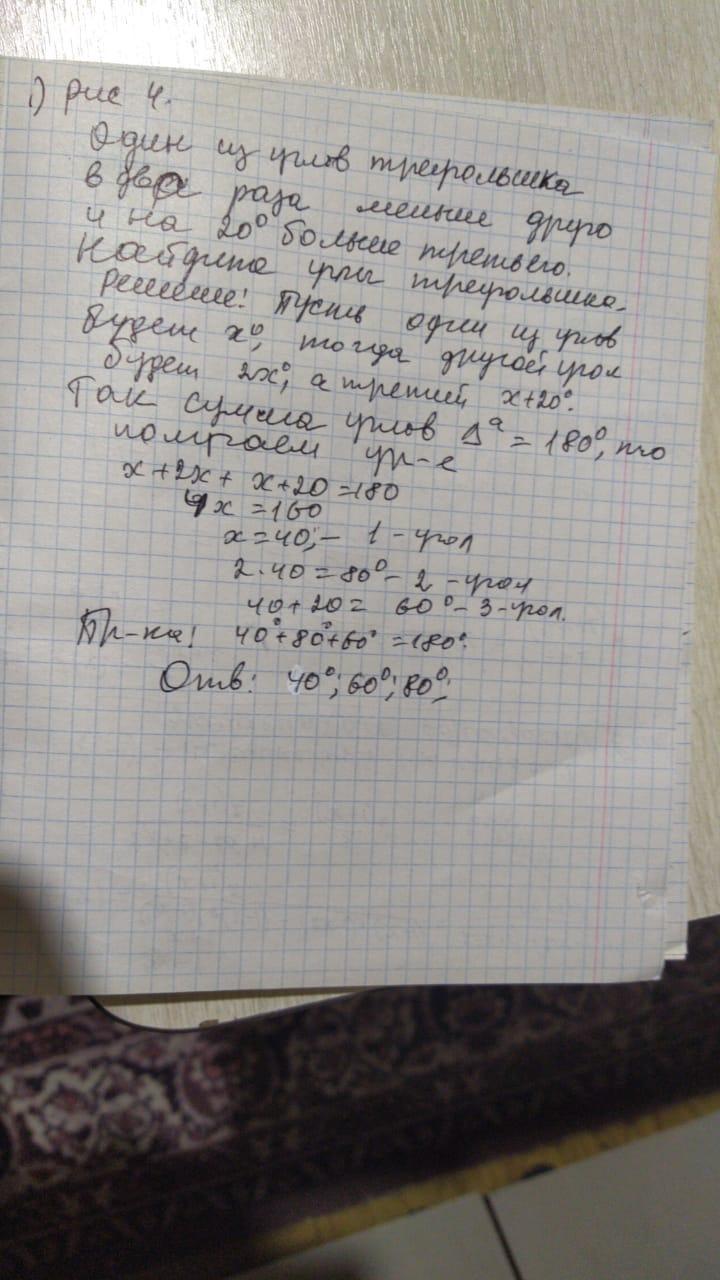 1) Рис 4.
Один из углов треугольника
в два раза меньше друго
и на 20° больше третьего.
Найдите углы треугольника.
Решение! Пусть один из углов
будет x°, тогда другой угол
будет 2x°, а третий x+20°.
Так сумма углов Δ^а = 180°, то
получаем ур-е
x+2x+ x+20=180
4x =160
x=40;- 1-угол
2·40=80°- 2-угол
40+20= 60°- 3-угол.
Пр-ка! 40°+80°+60° =180°.
Отв: 40°; 60°; 80°;